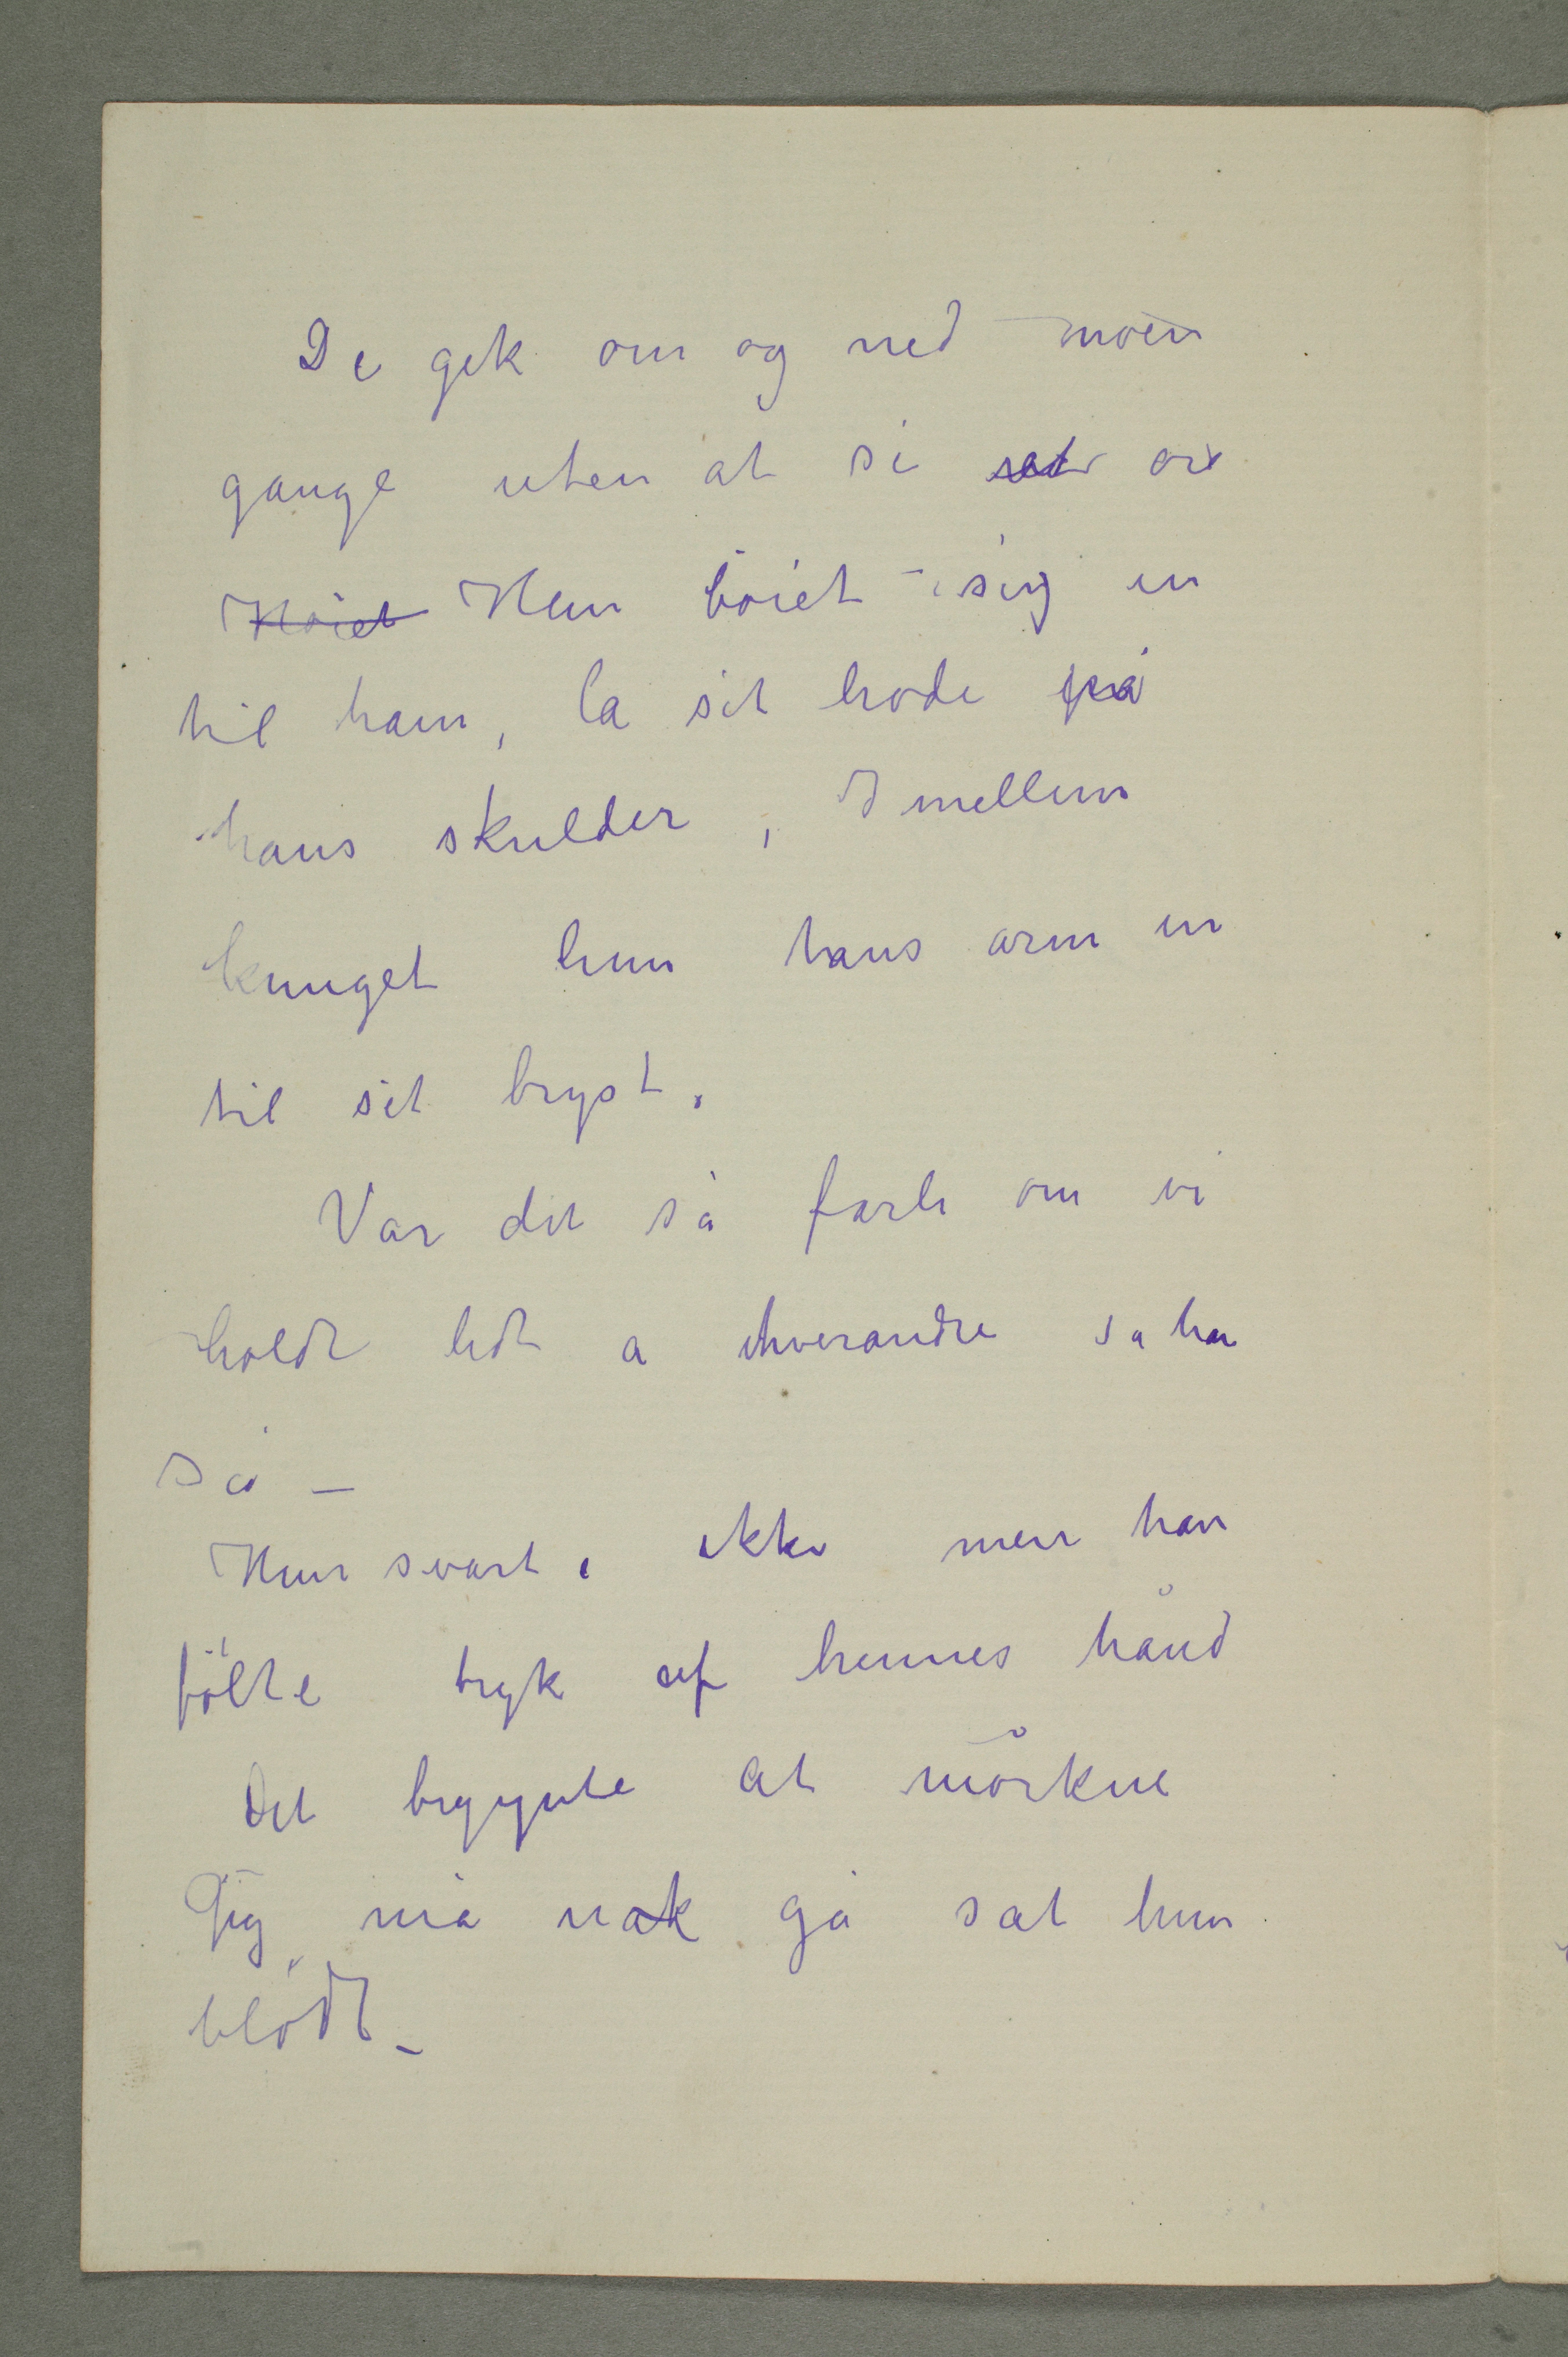 De gek om og ned noen
gange uten at si et or
Høiet Hun böiet sig in
til ham, la sit hode på
hans skulder, Imellem
knuget hun hans arm in
til sit bryst.
Var det så farli om vi
holdt lidt a hverandre sa han
så –
Hun svarte ikke men han
fölte tryk af hennes hånd
Det begynte at mörkne
Jeg må nok gå sat hun
blödt –